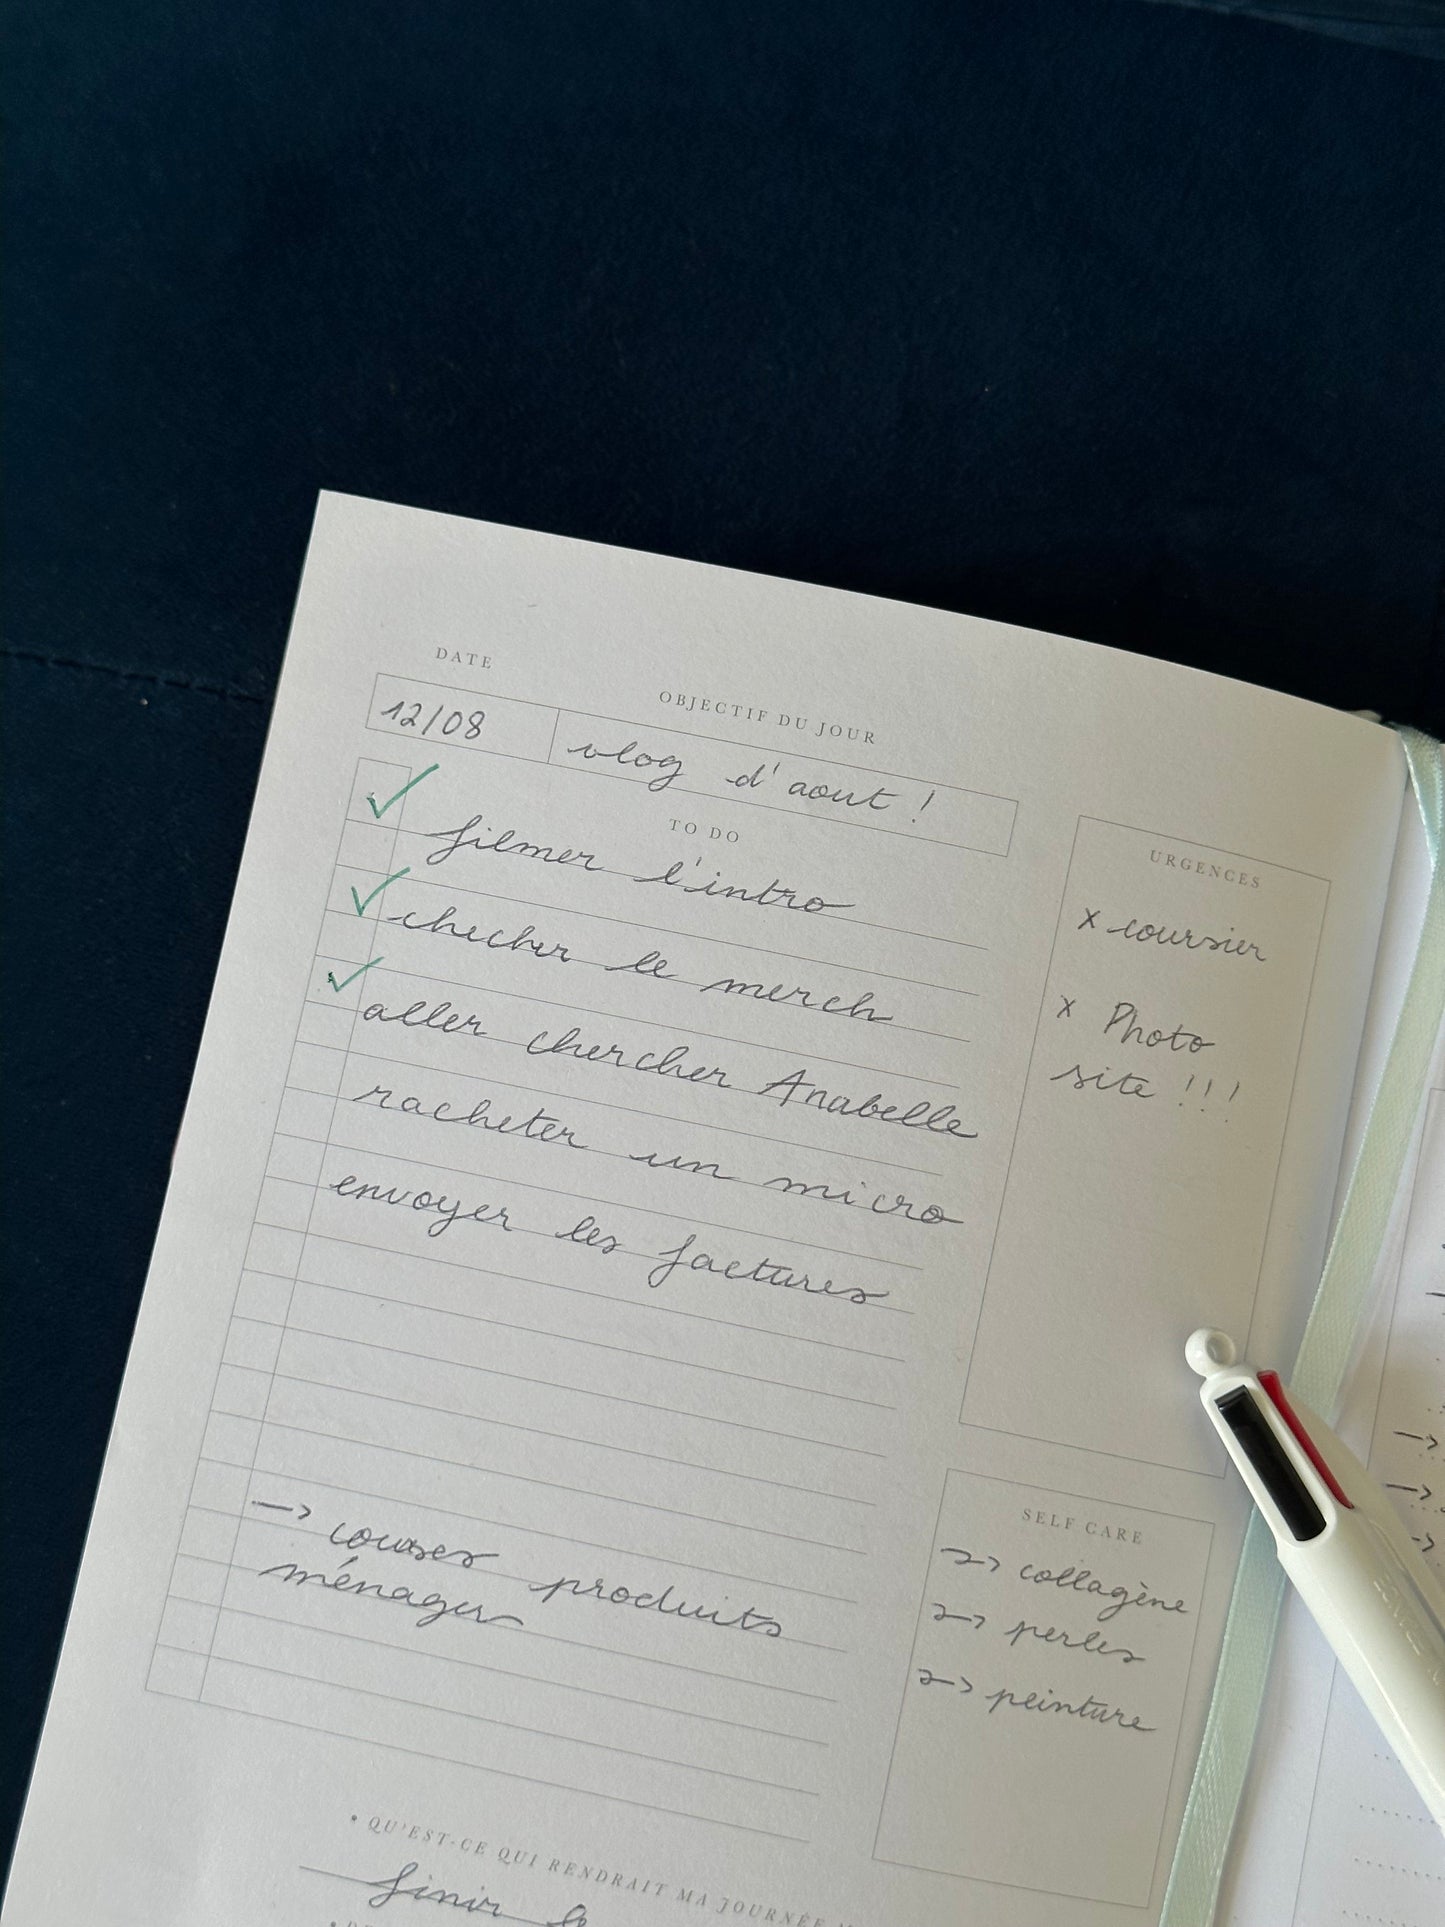 DATE
OBJECTIF DU JOUR
12/08
vlog d'aout !
TO DO
filmer l'intro
checker le merch
aller chercher Anabelle
racheter un micro
envoyer les factures
→ courses produits
ménager
URGENCES
x coursier
x Photo
site !!!
SELF CARE
→ collagène
→ perles
→ peinture
• QU'EST-CE QUI RENDRAIT MA JOURNÉE
finir le